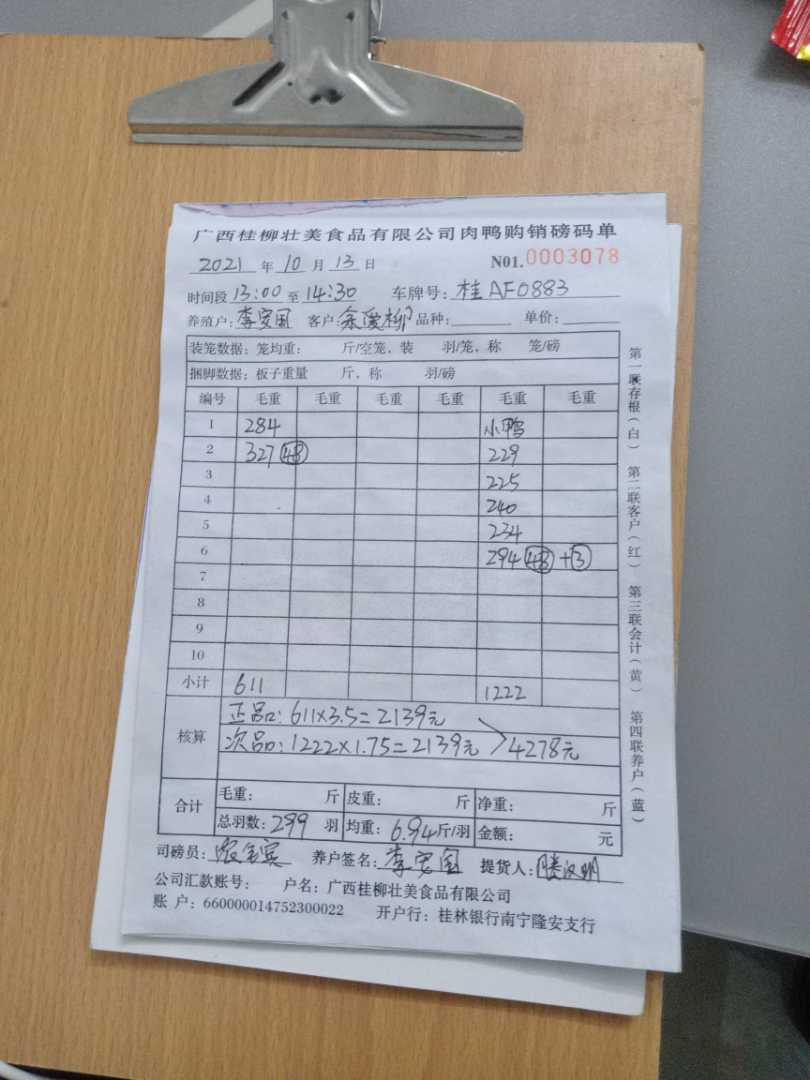 广西桂柳壮美食品有限公司肉鸭购销磅码单
2021 年 10 月 13 日 N01.0003078
时间段 13:00 至 14:30 车牌号: 桂AF0883
养殖户: 李安国 客户: 余爱柳 品种: 单价:
装笼数据: 笼均重: 斤/空笼、装 羽/笼、称 笼/磅
捆脚数据: 板子重量 斤、称 羽/磅
编号 毛重 毛重 毛重 毛重 毛重 毛重
1 284 小鸭
2 327 48 229
3 225
4 240
5 234
6 294 48 +3
7
8
9
10
小计 611 1222
核算
正品: 611×3.5=2139元
次品: 1222×1.75=2139元 > 4278元
合计
毛重: 斤 皮重: 斤 净重: 斤
总羽数: 299 羽 均重: 6.94 斤/羽 金额: 元
司磅员: 养户签名: 李安国 提货人: 滕汉明
公司汇款账号: 户名: 广西桂柳壮美食品有限公司
账 户: 660000014752300022 开户行: 桂林银行南宁隆安支行
第一联存根(白) 第二联客户(红) 第三联会计(黄) 第四联养户(蓝)